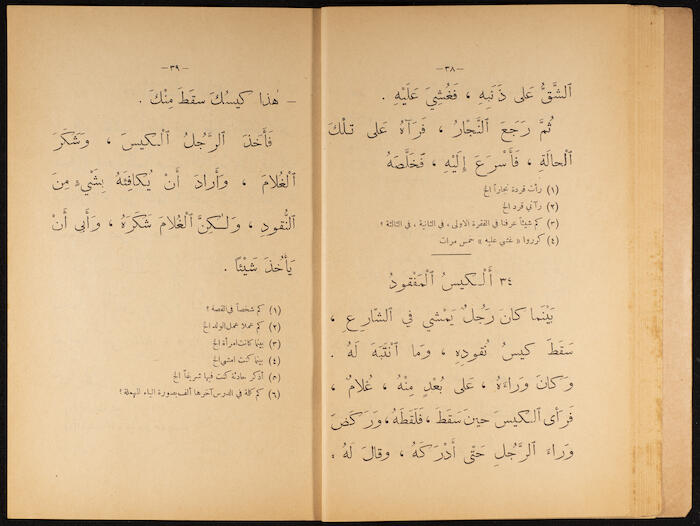 —٣٨—
ٱلشَّقُّ عَلَى ذَنَبِهِ ، فَغُشِيَ عَلَيْهِ .
ثُمَّ رَجَعَ ٱلنَّجَّارُ ، فَرَآهُ عَلَى تِلْكَ
ٱلْحَالَةِ ، فَأَسْرَعَ إِلَيْهِ ، فَخَلَّصَهُ
(١) رأت قردة نجاراً الخ
(٢) رآني قرد الخ
(٣) كم شيئاً عرفنا في الفقرة الاولى ، في الثانية ، في الثالثة ؟
(٤) كرروا « غشي عليه » خمس مرات
٣٤ أَلْكِيسُ ٱلْمَفْقُودُ
بَيْنَمَا كَانَ رَجُلٌ يَمْشِي فِي ٱلشَّارِعِ ،
سَقَطَ كِيسُ نُقُودِهِ ، وَمَا ٱنْتَبَهَ لَهُ .
وَكَانَ وَرَاءَهُ ، عَلَى بُعْدٍ مِنْهُ ، غُلَامٌ ،
فَرَأَى ٱلْكِيسَ حِينَ سَقَطَ ، فَلَقَطَهُ ، وَرَكَضَ
وَرَاءَ ٱلرَّجُلِ حَتَّى أَدْرَكَهُ ، وَقَالَ لَهُ :
—٣٩—
— هٰذَا كِيسُكَ سَقَطَ مِنْكَ .
فَأَخَذَ ٱلرَّجُلُ ٱلْكِيسَ ، وَشَكَرَ
ٱلْغُلَامَ ، وَأَرَادَ أَنْ يُكَافِئَهُ بِشَيْءٍ مِنَ
ٱلنُّقُودِ ، وَلٰكِنَّ ٱلْغُلَامَ شَكَرَهُ ، وَأَبَى أَنْ
يَأْخُذَ شَيْئًا .
(١) كم شخصاً في القصة ؟
(٢) كم عملا عمل الولد الخ
(٣) بينما كانت امرأة الخ
(٤) بينما كنت امشي الخ
(٥) أذكر حادثة كنت فيها شريفاً الخ
(٦) كم كلمة في الدرس آخرها ألف بصورة الياء المهملة ؟